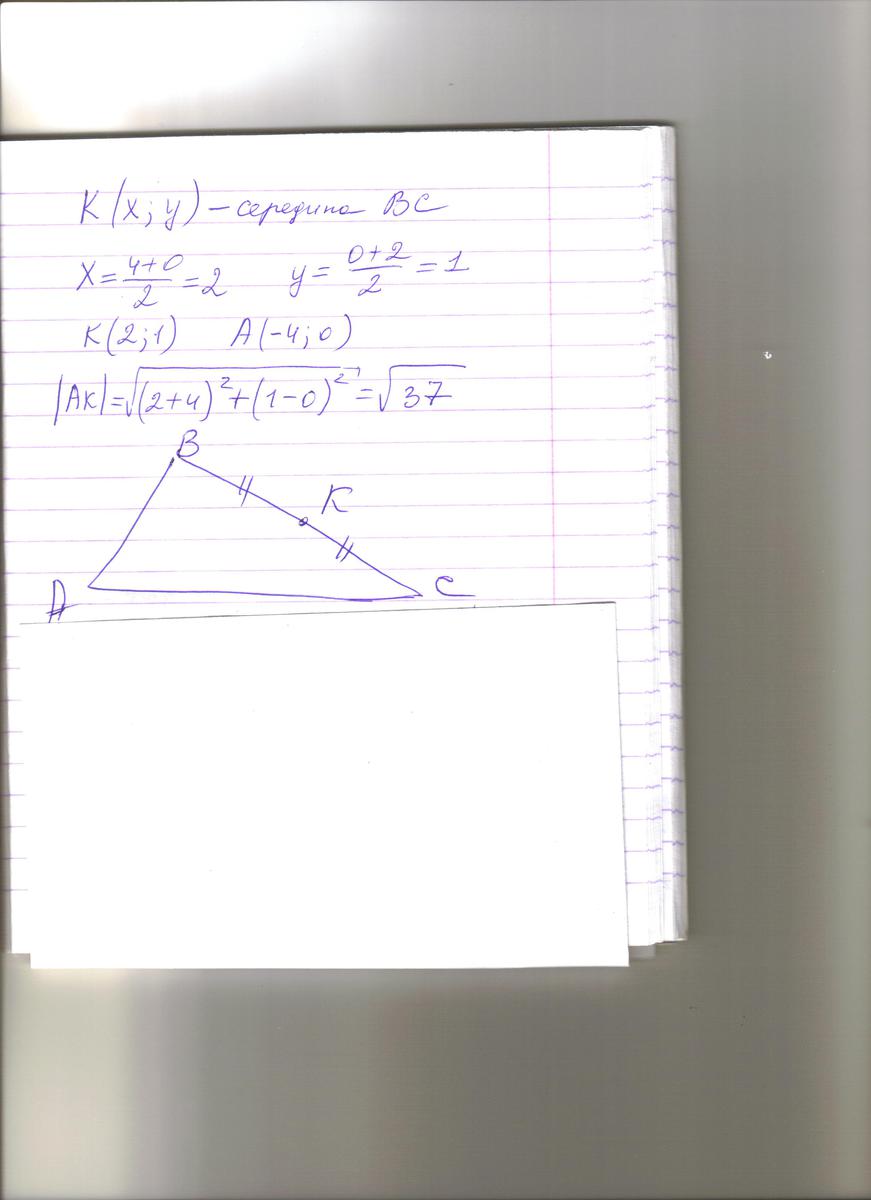 K(x; y) – середина BC
x = (4+0)/2 = 2 y = (0+2)/2 = 1
K(2; 1) A(-4; 0)
|AK| = √((2+4)² + (1-0)²) = √37
B
K
A
C